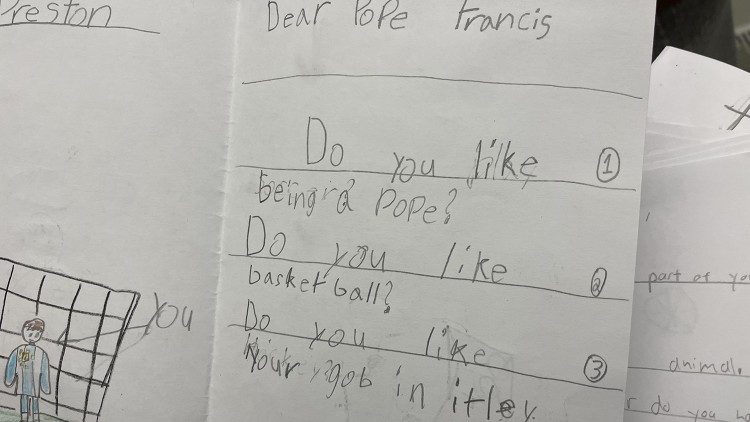 reston
Dear Pope Francis
Do you like ①
being a Pope?
Do you like ②
basketball?
Do you like ③
Your gob in itley.
You
part of yo
animal.
r do you ha